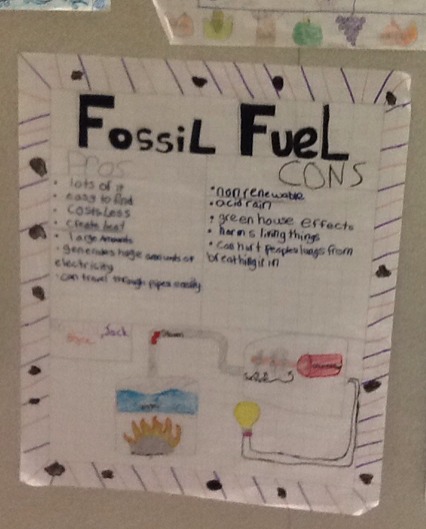 FOSSIL FUEL
PROS
• lots of it
• easy to find
• Costs Less
• create heat
• Large Amounts
• generates huge amounts of
electricity
• can travel through pipes easily
CONS
• non renewable
• acid rain
• green house effects
• harms living things
• Can hurt peoples lungs from
breathing it in
Jack